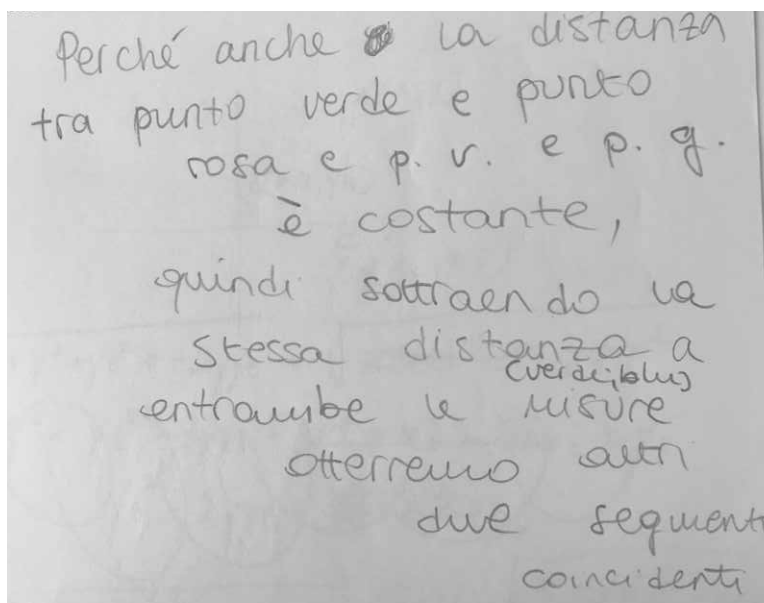 Perché anche la distanza
tra punto verde e punto
rosa e p. v. e p. g.
è costante,
quindi sottraendo la
stessa distanza a
(verde;blu)
entrambe le misure
otterremo altri
due segmenti
coincidenti